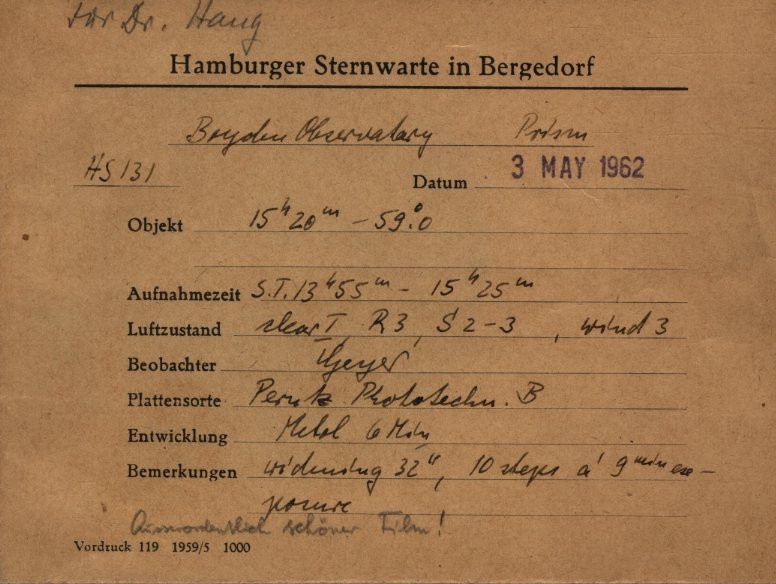 Für Dr. Haug
Hamburger Sternwarte in Bergedorf
Boyden Observatory Prism
HS 131
Datum 3 MAY 1962
Objekt 15ʰ 20ᵐ – 59°.0
Aufnahmezeit S.T. 13ʰ 55ᵐ – 15ʰ 25ᵐ
Luftzustand clear I, R3, S 2–3, wind 3
Beobachter Geyer
Plattensorte Perutz Phototechn. B
Entwicklung Metol 6 Min
Bemerkungen widening 32", 10 steps á 9 ᵐⁱⁿ exe-
posure
Ausserordentlich schöner Film!
Vordruck 119 1959/5 1000